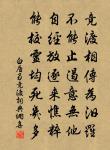 競渡相傳為汨羅
不能止遏意無他
自經放逐來憔悴
能校靈均死幾多
白居易競渡